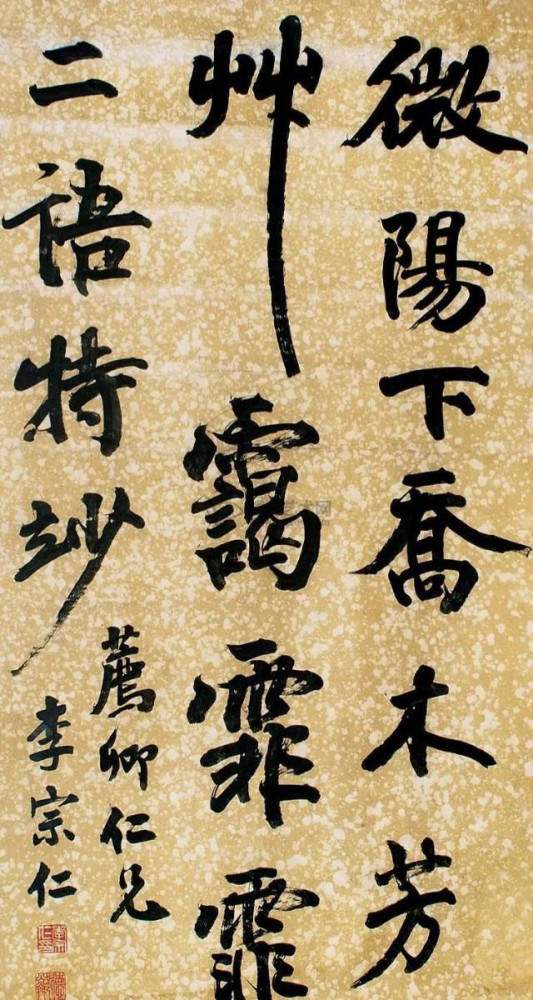 微陽下喬木芳
艸靄霏霏
二語特妙
薦卿仁兄
李宗仁